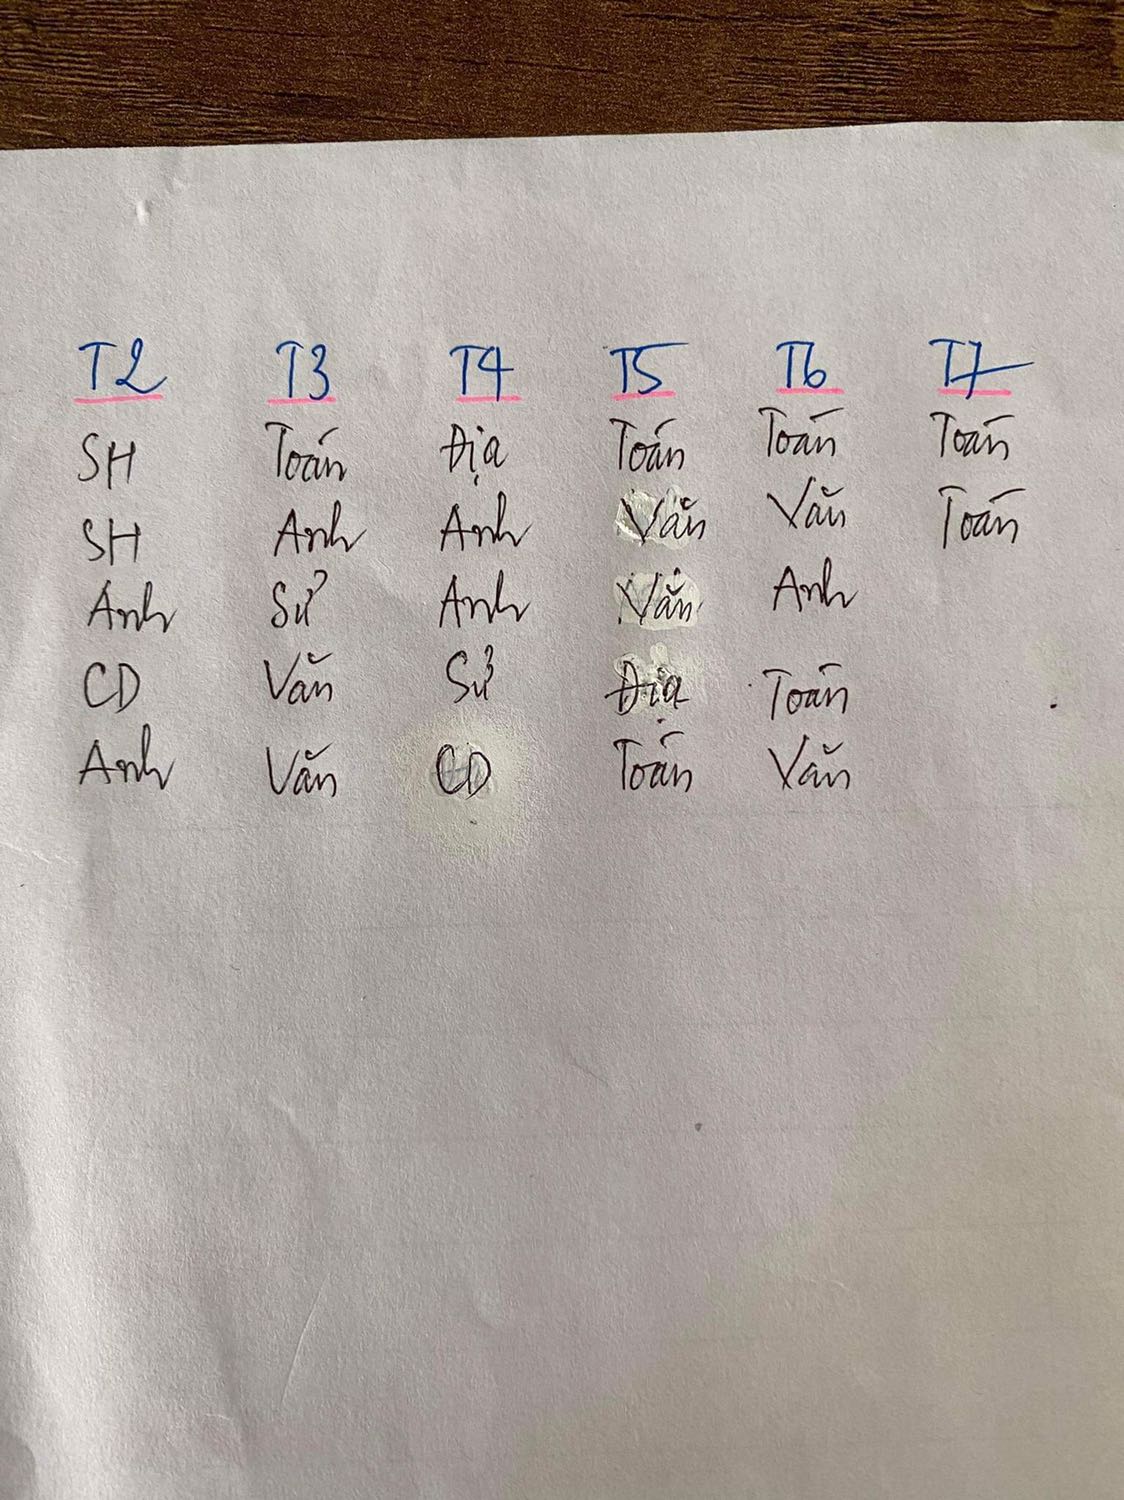 T2 T3 T4 T5 T6 T7
SH Toán Địa Toán Toán Toán
SH Anh Anh Văn Văn Toán
Anh Sử Anh Văn Anh
CD Văn Sử Địa Toán
Anh Văn CD Toán Văn